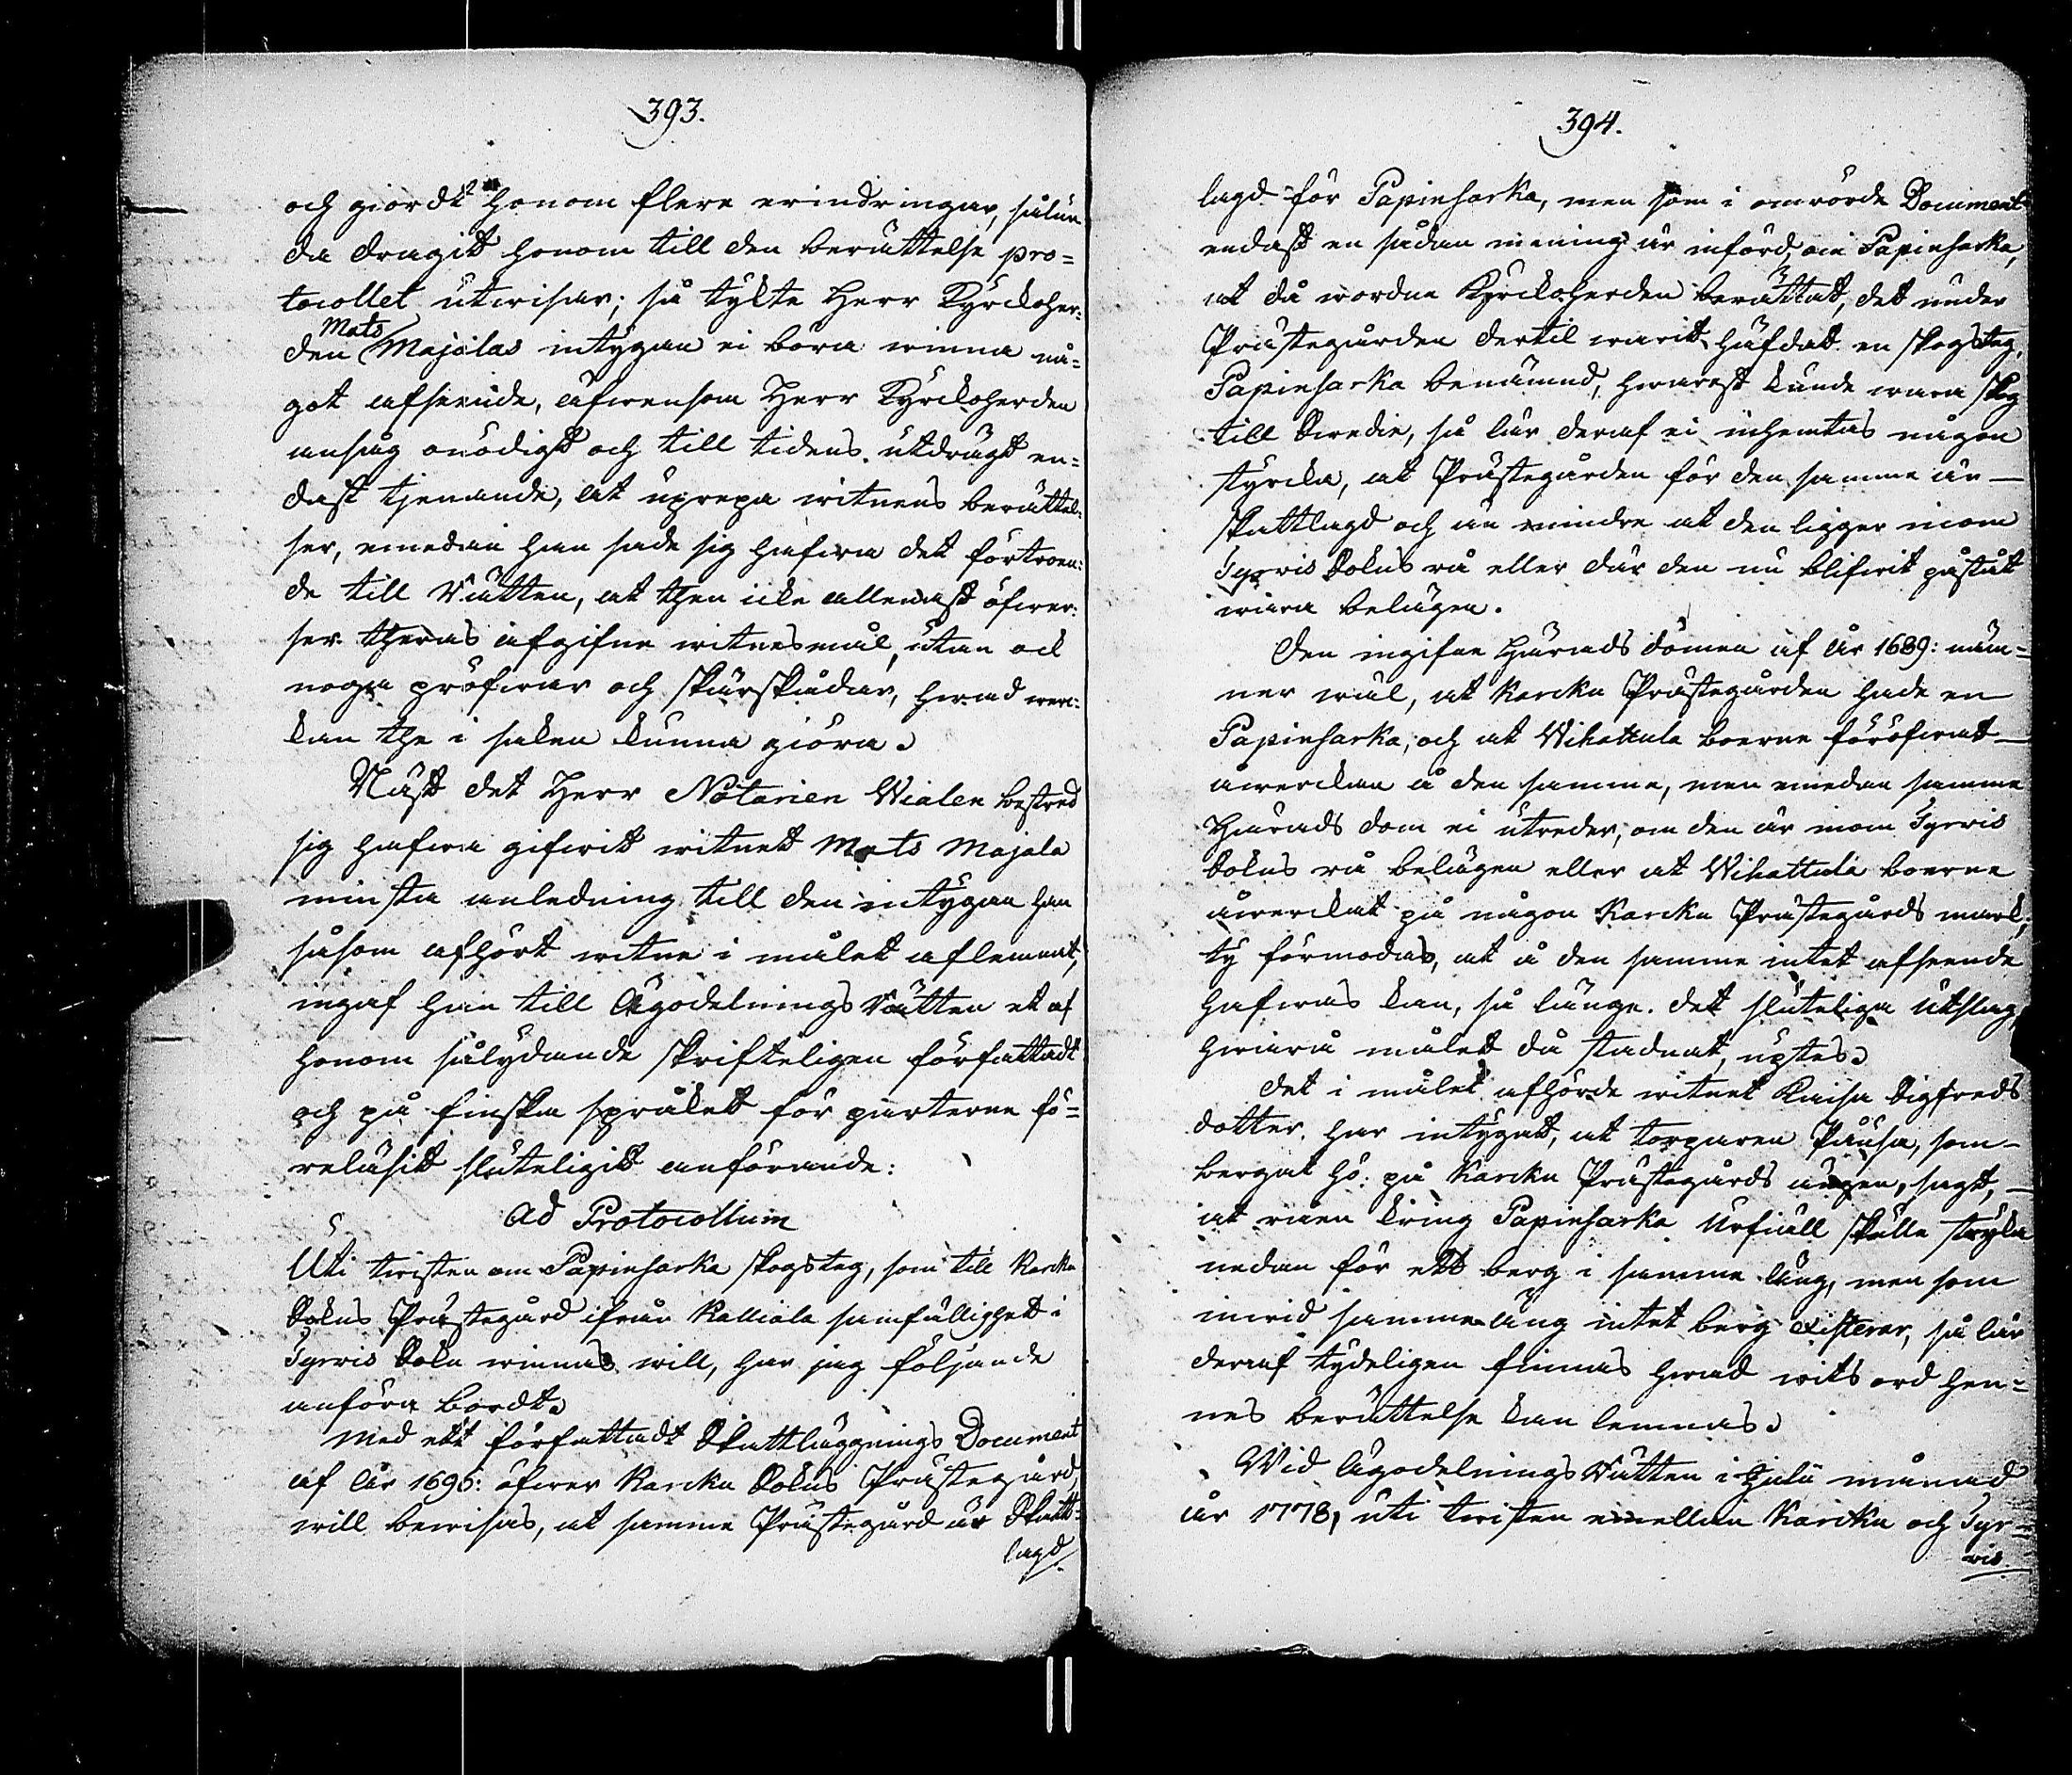 393.
och giordt honom flere erindringar, sålun
da dragit honom till den berättelse pro=
tocollet utwisar; så tykte Herr Kyrckoher=
den Mats Majalas intygan ei böra winna nå=
got afseende, äfwensom Herr Kyrckoherden
ansåg onödigt och till tidens utdrägt en=
dast tjenande, at uprepa witnens berättel=
ser, emedan han sade sig hafwa det förtroen=
de till Rätten, at then icke allenast öfwer=
ser theras afgifne witnesmål, utan ock
noga pröfwar och skärskådar, hwad wer=
kan the i saken kunna giöra.
Näst det Herr Notarien Wialen bestred
sig hafwa gifwit witnet Mats Majala
minsta anledning till den intygan han
såsom afhört witne i målet aflemnat,
ingaf han till Ägodelnings Rätten et af
honom sålydande skrifteligen författadt
och på finska språket för parterne fö=
reläsit sluteligit anförande:
Ad Protocollum
Uti twisten om Papinsarka skogsteg, som till Karcku
Sokns Prästegård ifrån Kalliala samfällighet i
Tyrwis Sokn winnas will, har jag följande
anföra bordt.
Med ett författadt Skattläggnings Document
af år 1695: öfwer Karcku Sokns Prästegård,
will bewisas, at samma Prästegård är Skatt=
lagd
394.
lagd för Papinsarka, men som i omrörde Document
endast en sådan mening är införd, om Papinsarka,
at då wordne Kyrckoherden berättat, det under
Prästegården dertil warit häfdat en skogsteg,
Papinsarka benämnd, hwarest kunde wara skog
till Swedie, så lär deraf ei inhemtas någon
styrcka, at Prästegården för den samma är
skattlagd och än mindre at den ligger inom
Tyrwis Sokns rå eller där den nu blifwit påstått
wara belägen.
Den ingifne Härads domen af år 1689: näm=
ner wäl, at Karcku Prästegården hade en
Papinsarka, och at Wihattula boerne föröfwat
åwerckan å den samma, men emedan samma
Härads dom ei utreder, om den är inom Tyrwis
Sokns rå belägen eller at Wihattula boerne
åwerckat på någon Karcku Prästegårds mark,
ty förmodas, at å den samma intet afseende
hafwas kan, så länge det sluteliga utslag,
hwarå målet då stadnat, uptes.
Det i målet afhörde witnet Kaisa Sigfreds
dotter har intygat, at torparen Påusa, som
bergat hö på Karcku Prästegårds ängen, sagt,
at råen kring Papinsarka Urfiäll skulle stryka
nedan för ett berg i samma äng, men som
inwid samma äng intet berg existerar, så lär
deraf tydeligen finnas hwad wits ord hen=
nes berättelse kan lemnas.
Wid Ägodelnings Rätten i Julii månad
år 1778, uti twisten emellan Karcku och Tyr=
wis